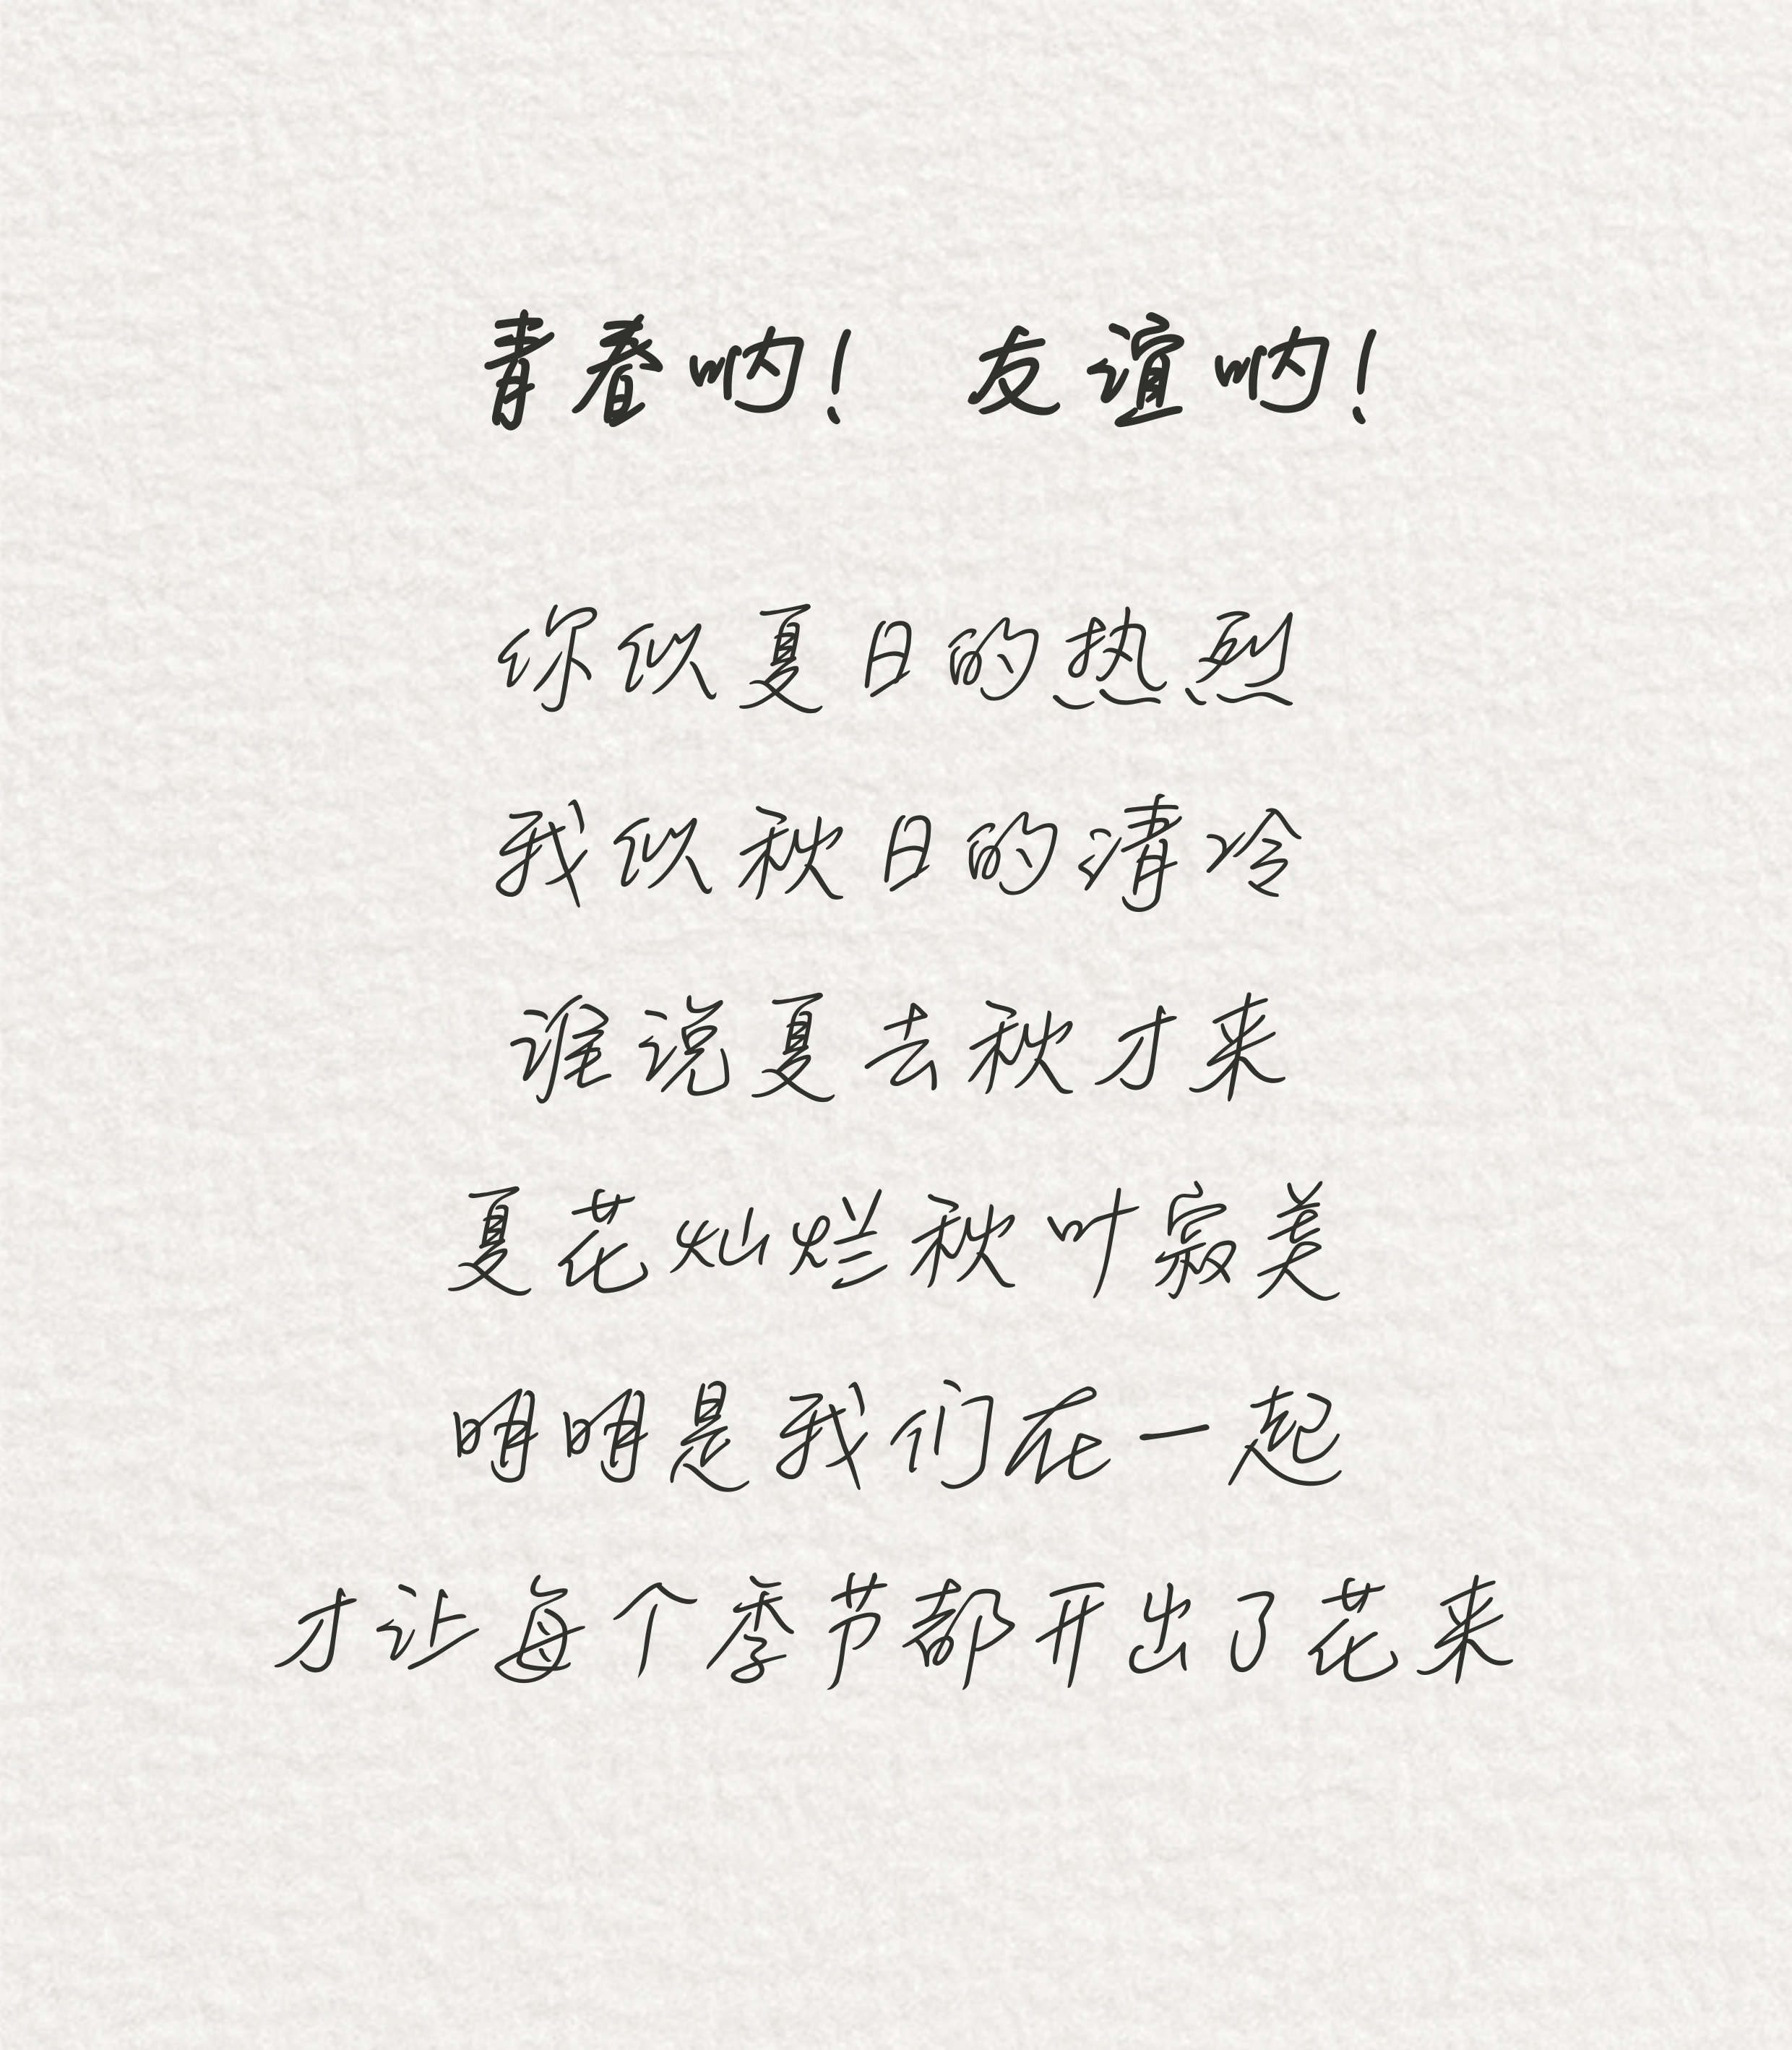 青春呐！ 友谊呐！
你似夏日的热烈
我似秋日的清冷
谁说夏去秋才来
夏花灿烂秋叶寂美
明明是我们在一起
才让每个季节都开出了花来